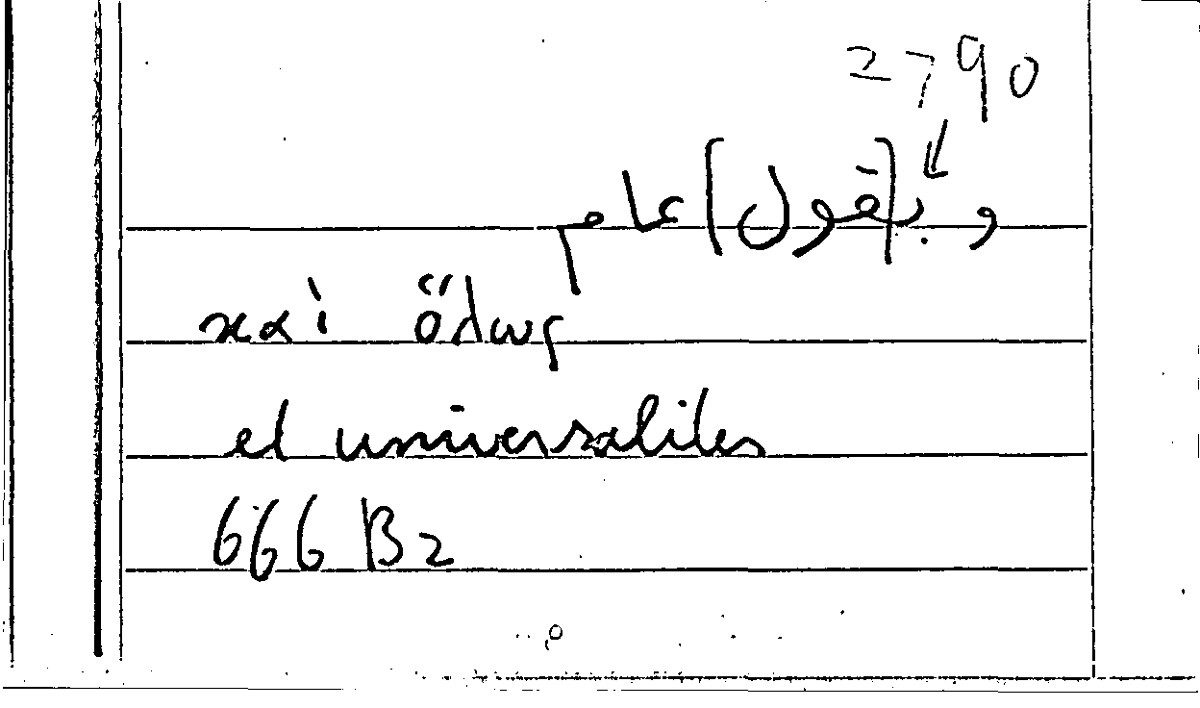 2790
و ب[قول] عام
καὶ ὅλως
et universaliter
666 B2